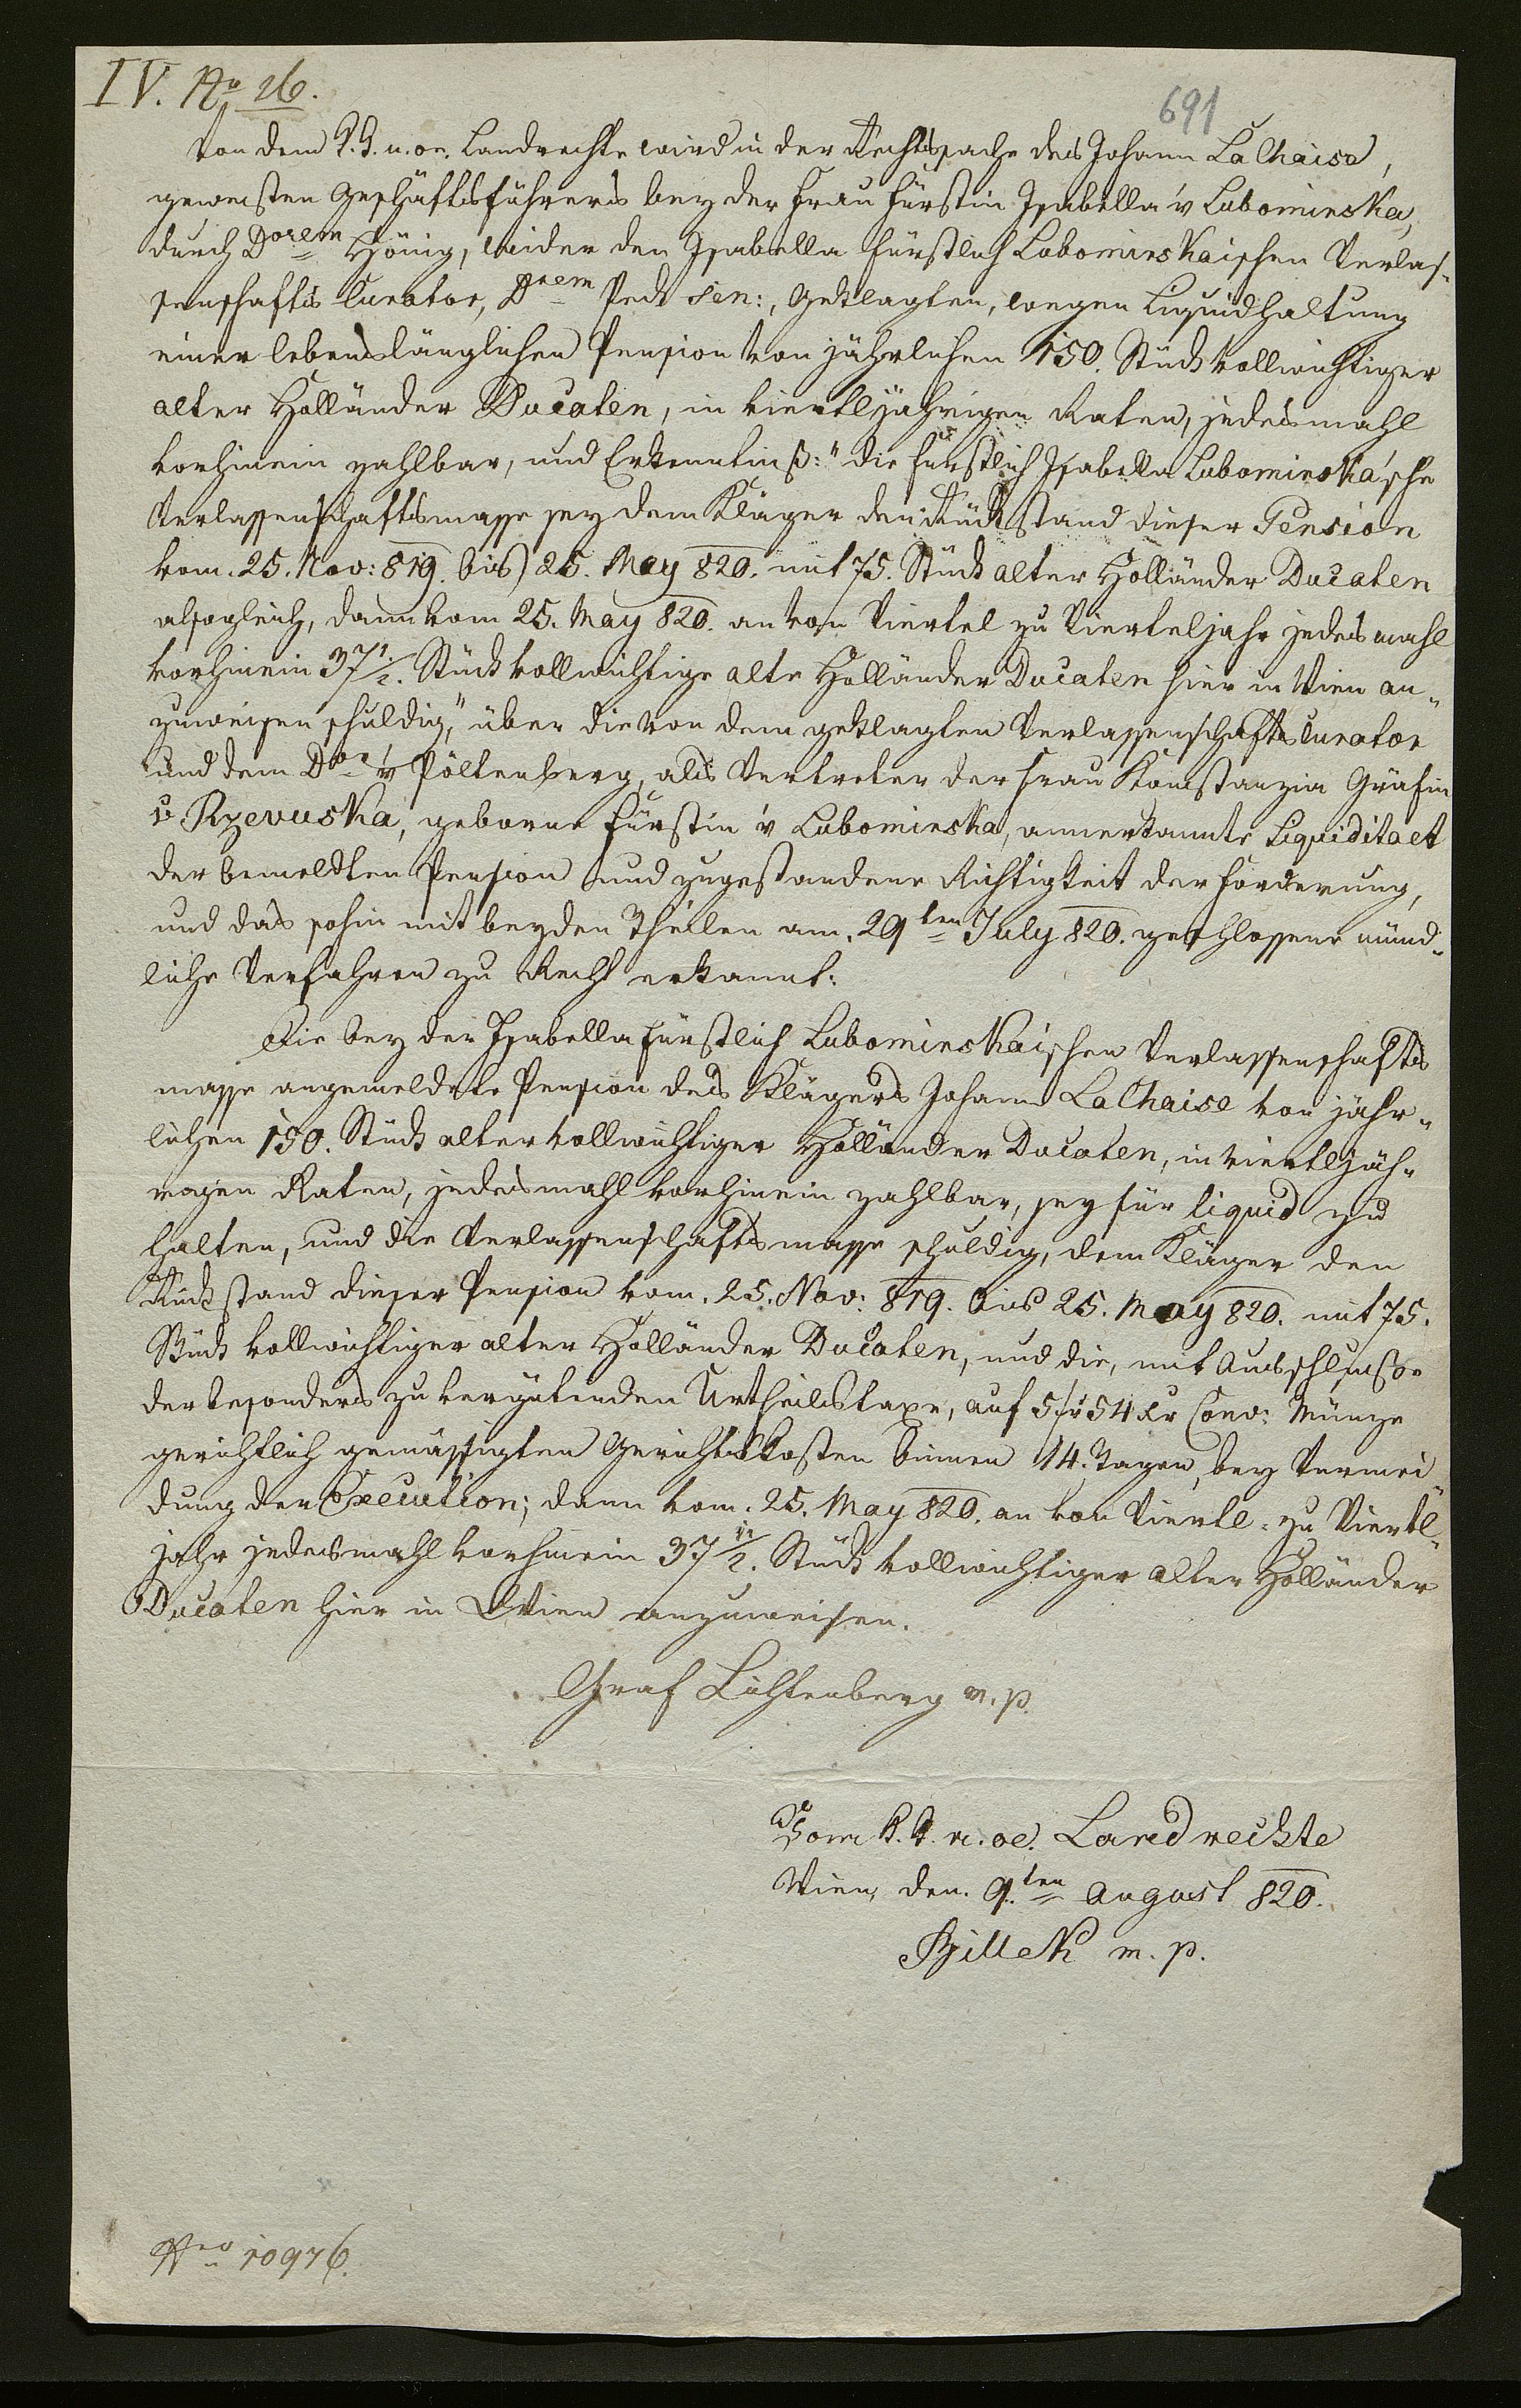 IV. No 26.
691
Von dem k. k. n. oe. Landrechte wird in der Rechtssache des Johann La Chaise,
gewesten Geschäftsführers bey der Frau Fürstin Isabella v Lubomirska,
durch Dorem Hönig, wider den Isabella fürstlich Lubomirskaischen Verlas-
senschafts Curator, Drem Peck sen:, Geklagten, wegen Liquidhaltung
einer lebenslänglichen Pension von jährlichen 150. Stück vollwichtiger
alter Holländer Ducaten, in viertljährigen Raten, jedesmahl
vorhinein zahlbar, und Erkenntniß: "die fürstlich Isabella Lubomirska'sche
Verlassenschaftsmasse sey dem Kläger den Rückstand dieser Pension
vom 25. Nov: 819. bis 25. May 820. mit 75. Stück alter Holländer Ducaten
alsogleich, dann vom 25. May 820. an von Viertel zu Vierteljahr jedesmahl
vorhinein 37 1/2. Stück vollwichtige alte Holländer Ducaten hier in Wien an-
zuweisen schuldig", über die von dem geklagten Verlassenschafts Curator
und dem Dor v Pöltenberg, als Vertreter der Frau Konstanzia Gräfin
v. Rzevuska, geborne Fürstin v Lubomirska, anerkannte Liquiditaet
der bemeldten Pension und zugestandene Richtigkeit der Forderung,
und das sohin mit beyden Theilen am 29ten July 820. geschlossene münd-
liche Verfahren zu Recht erkannt:
Die bey der Isabella fürstlich Lubomirskaischen Verlassenschafts
masse angemeldete Pension des Klägers Johann La Chaise von jähr-
lichen 150. Stück alter vollwichtiger Holländer Ducaten, in viertljäh-
rigen Raten, jedesmahl vorhinein zahlbar, sey für liquid zu
halten, und die Verlassenschaftsmasse schuldig, dem Kläger den
Rückstand dieser Pension vom 25. Nov: 819. bis 25. May 820. mit 75.
Stück vollwichtiger alter Holländer Ducaten, und die, mit Ausschlusse
der besonders zu vergütenden Urtheilstaxe, auf 5 fr 54 Xr Conv: Münze
gerichtlich gemässigten Gerichtskosten binnen 14. Tagen, bey Vermei-
dung der Execution; dann vom 25. May 820. an von Viertl- zu Viertl-
jahr jedesmahl vorhinein 37 1/2. Stück vollwichtiger alter Holländer
Ducaten hier in Wien anzuweisen.
Graf Lichtenberg m. p.
Vom k. k. n. oe. Landrechte
Wien den 9.ten August 820.
Billek m. p.
Nro 10976.